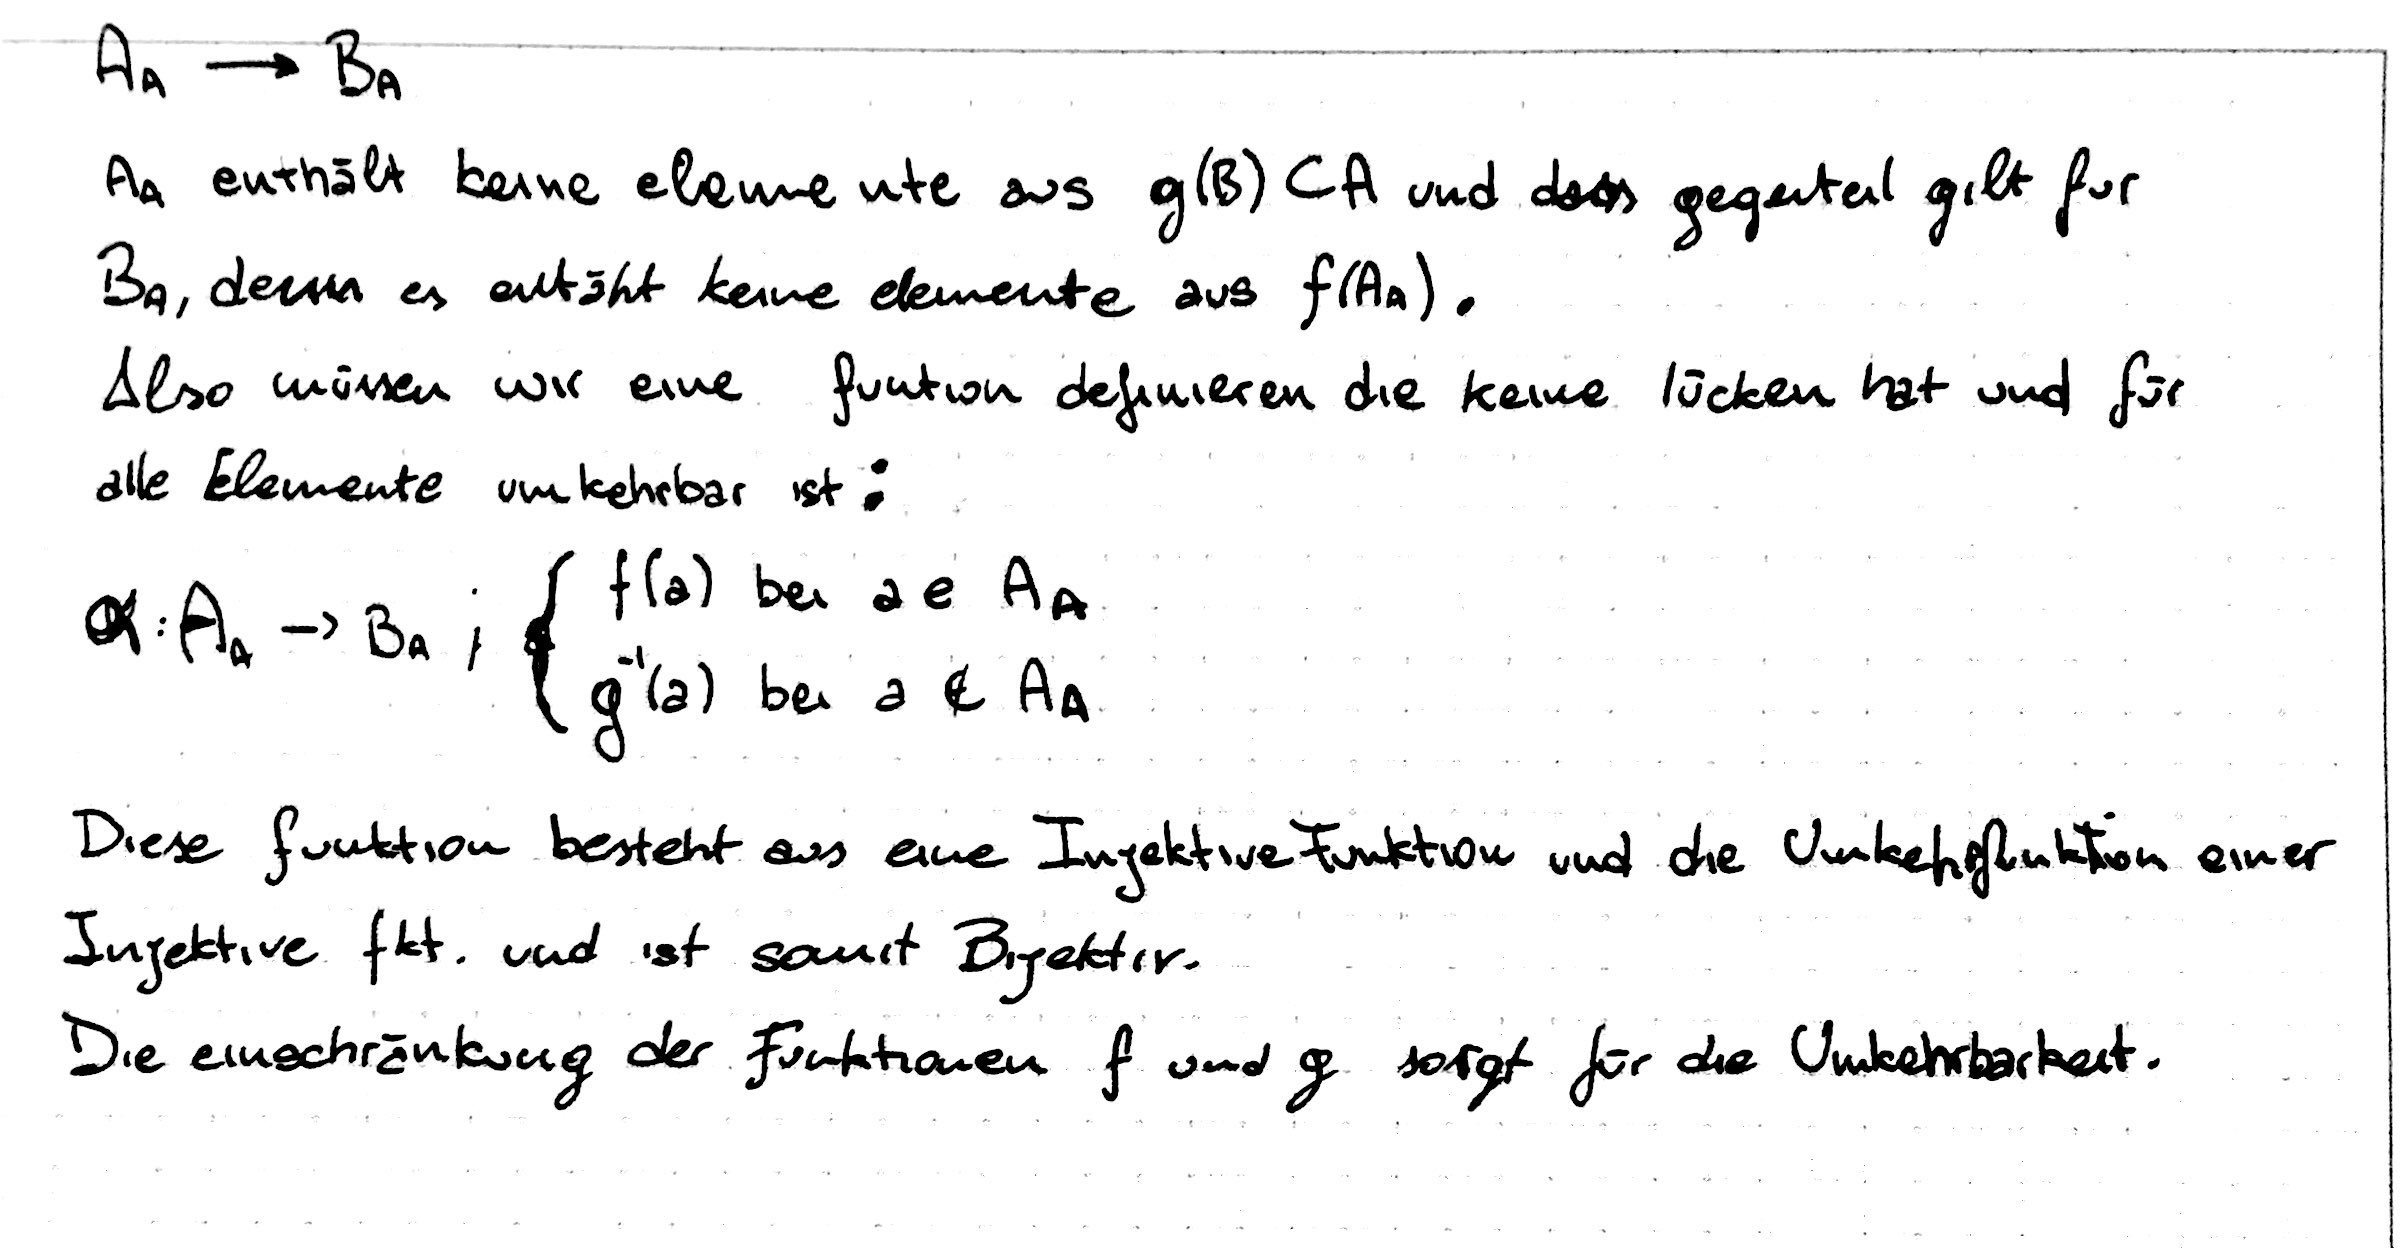 A_A → B_A
A_A enthält keine elemente aus g(B) ⊂ A und das gegenteil gilt für
B_A, denn es enthält keine elemente aus f(A_A).
Also müssen wir eine funtion definieren die keine lücken hat und für
alle Elemente umkehrbar ist:
α: A_A → B_A ; { f(a) bei a ∈ A_A
g⁻¹(a) bei a ∉ A_A
Diese funktion besteht aus eine Injektive Funktion und die Umkehrfunktion einer
Injektive fkt. und ist somit Bijektiv.
Die einschränkung der Funktionen f und g sorgt für die Umkehrbarkeit.